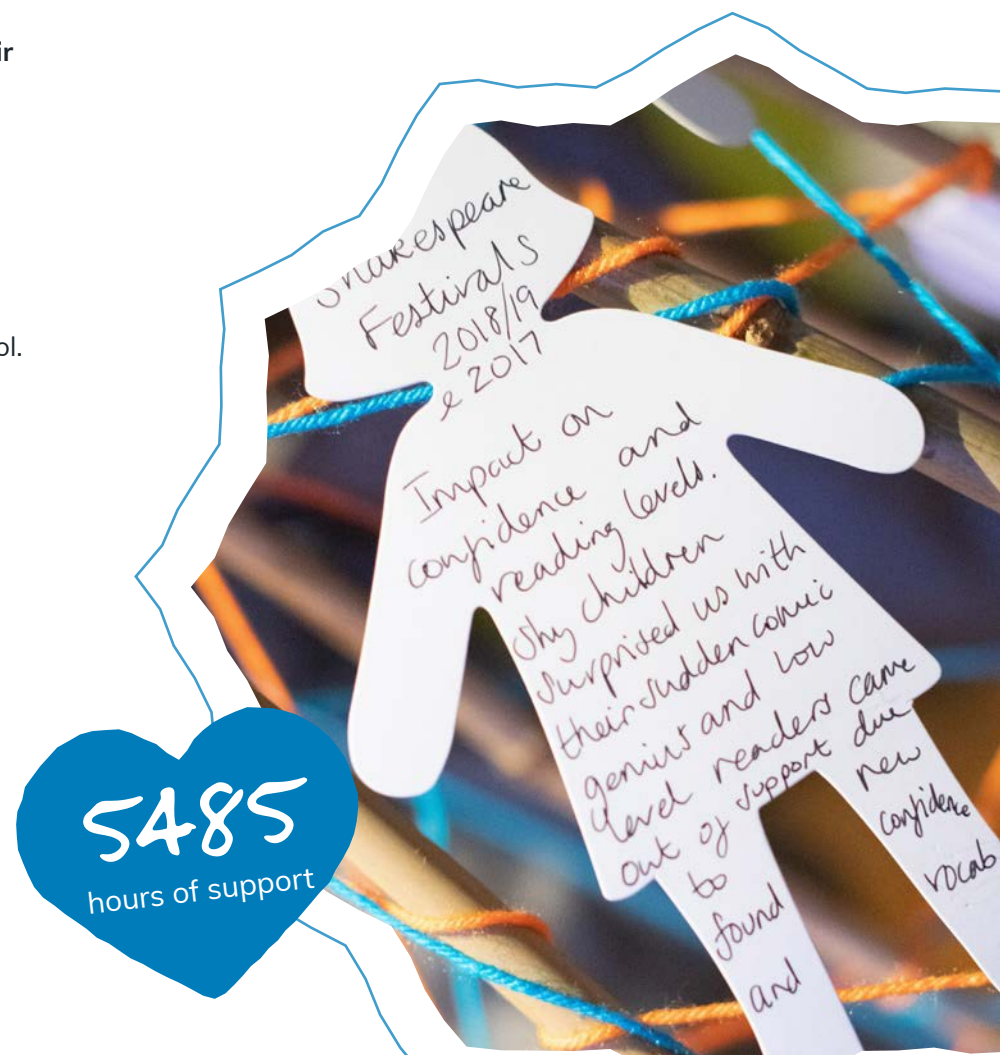 ir
ol.
Shakespeare
Festivals
2018/19
& 2017
Impact on
confidence and
reading levels.
Shy children
surprised us with
their sudden comic
genius and low
level readers came
out of support due
to new
found confidence
and vocab
5485
hours of support